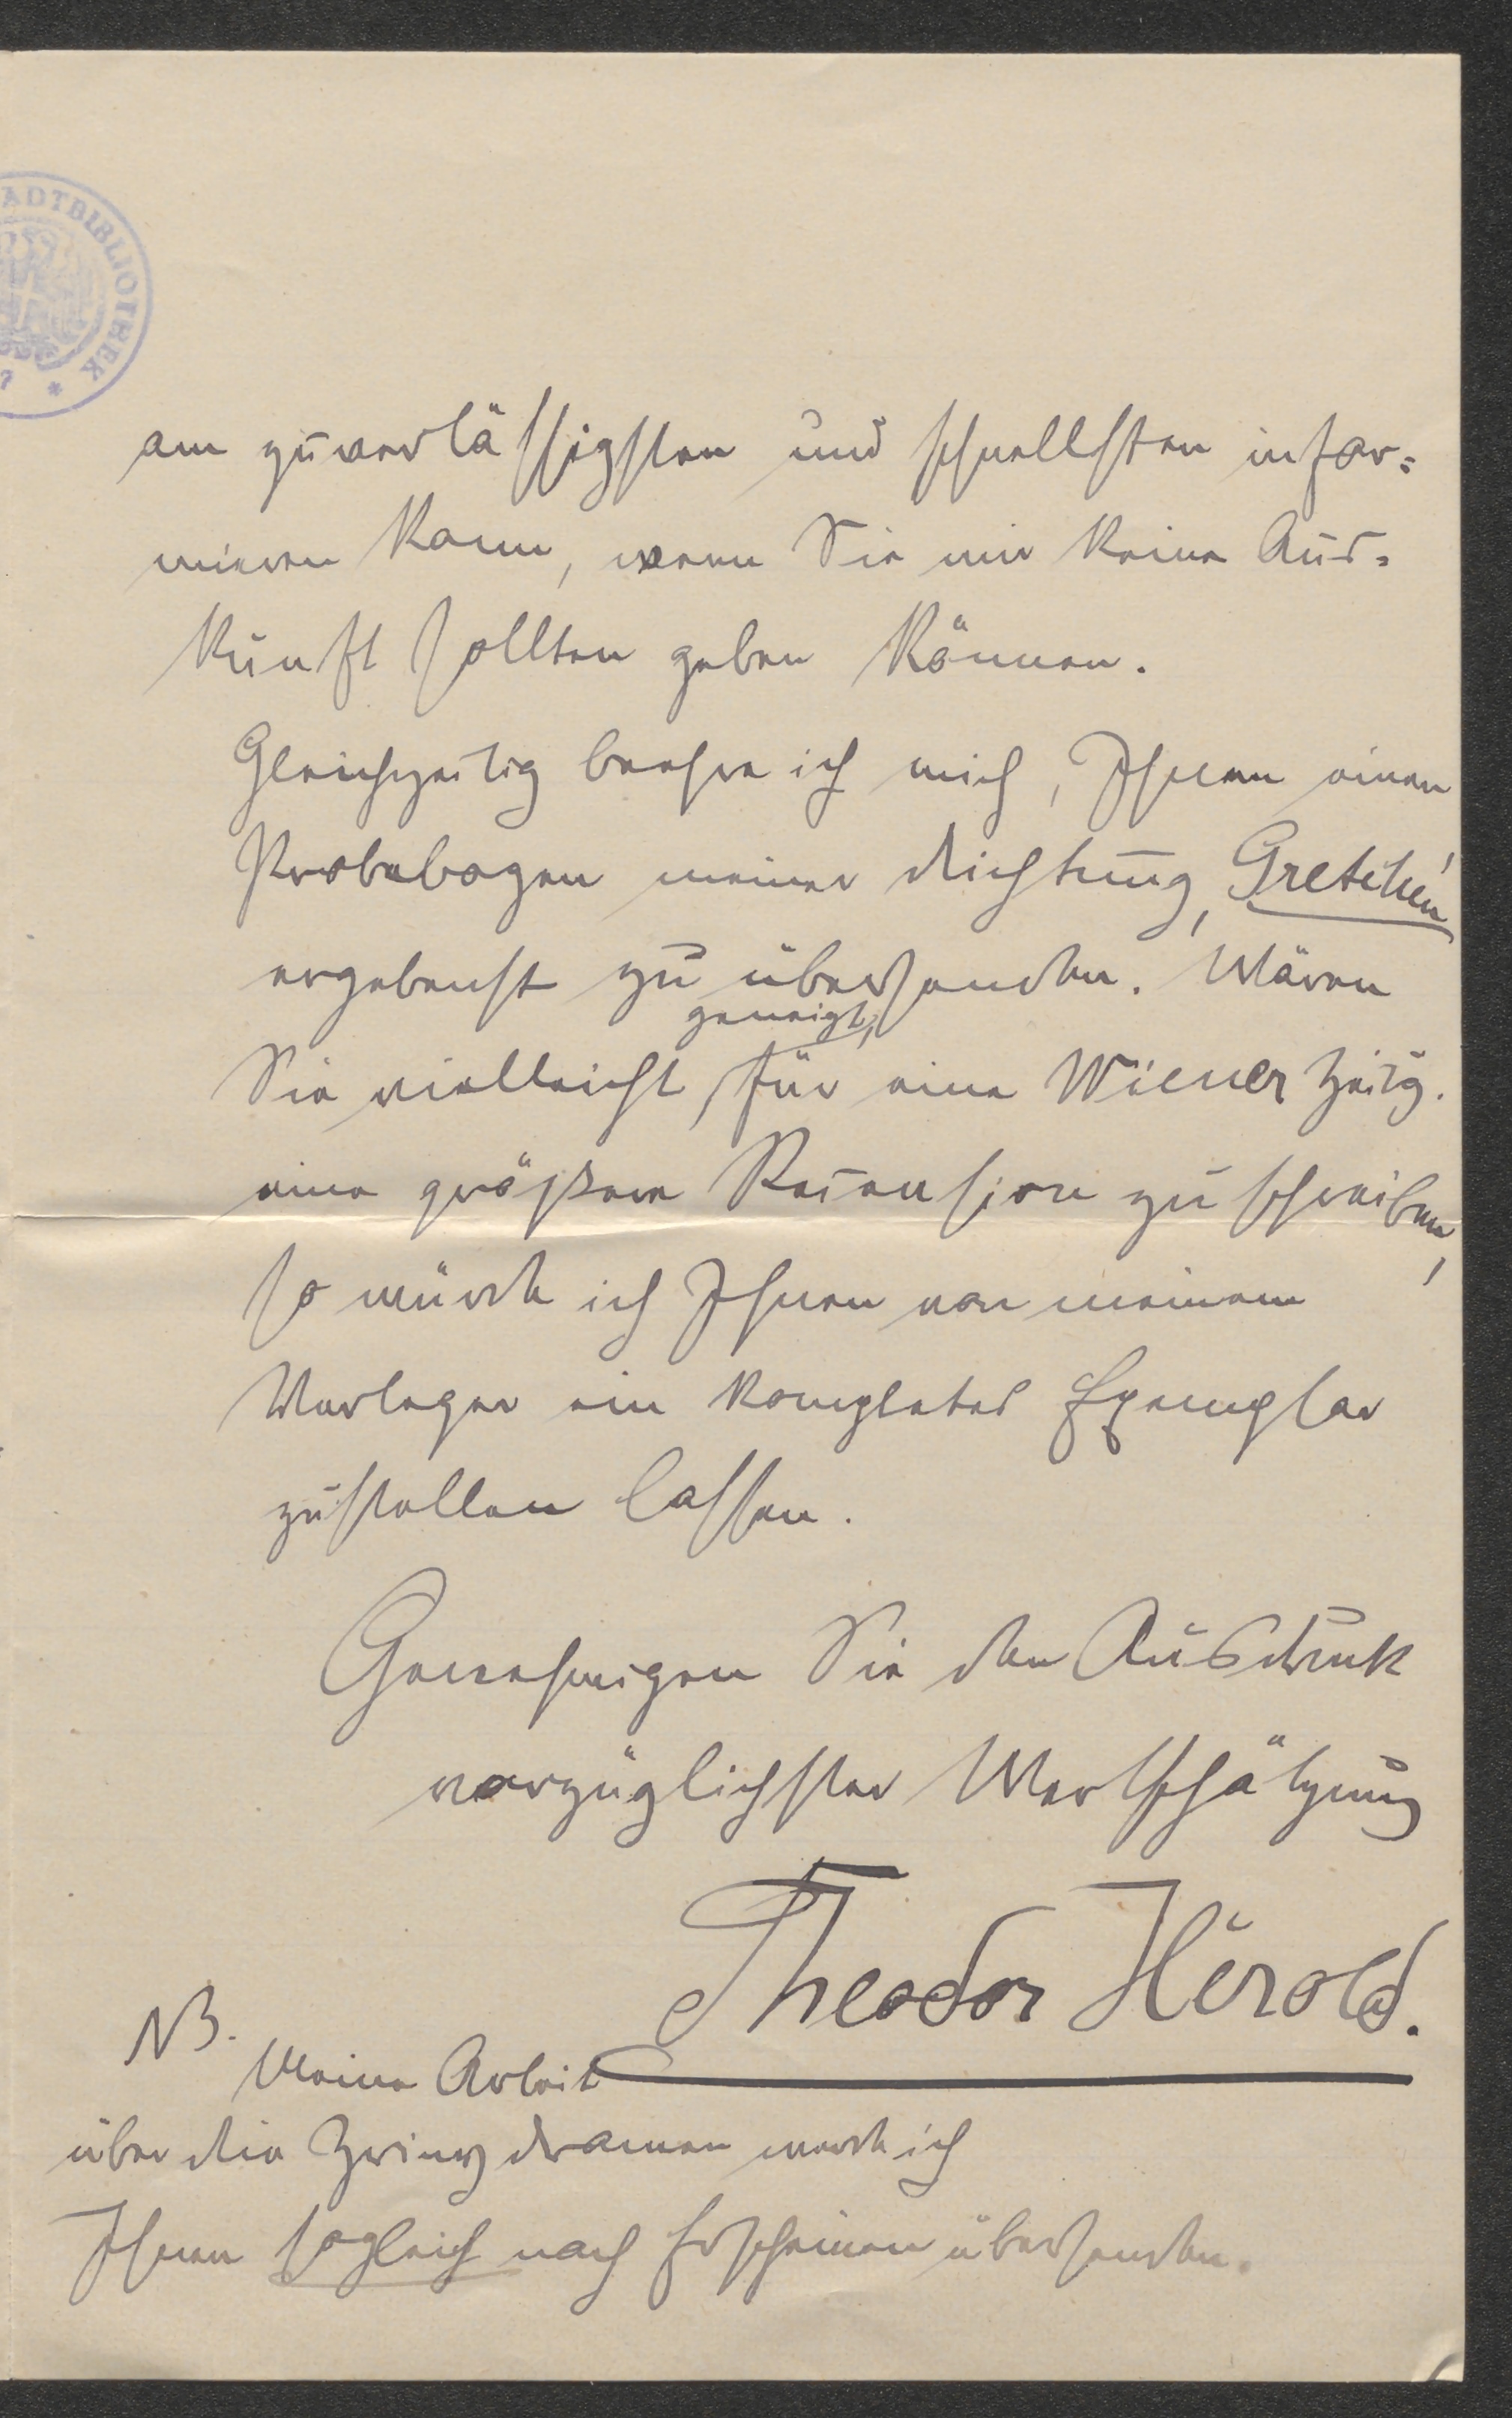 ADTBIBLIOTHEK *
am zuverlässigsten und schnellsten infor=
mieren kann, wenn Sie mir keine Aus=
kunft sollten geben können.
Gleichzeitig beehre ich mich, Ihnen einen
Probebogen meiner Dichtung „Gretchen“
ergebenst zu übersenden. Wären
geneigt,
Sie vielleicht für eine Wiener Zeitg.
eine größere Recension zu schreiben,
so würde ich Ihnen von meinem
Verleger ein kompletes Exemplar
zustellen lassen.
Genehmigen Sie den Ausdruck
vorzüglichster Wertschätzung
Theodor Herold.
NB. Meine Arbeit
über die Zrinydramen werde ich
Ihnen sogleich nach Erscheinen übersenden.